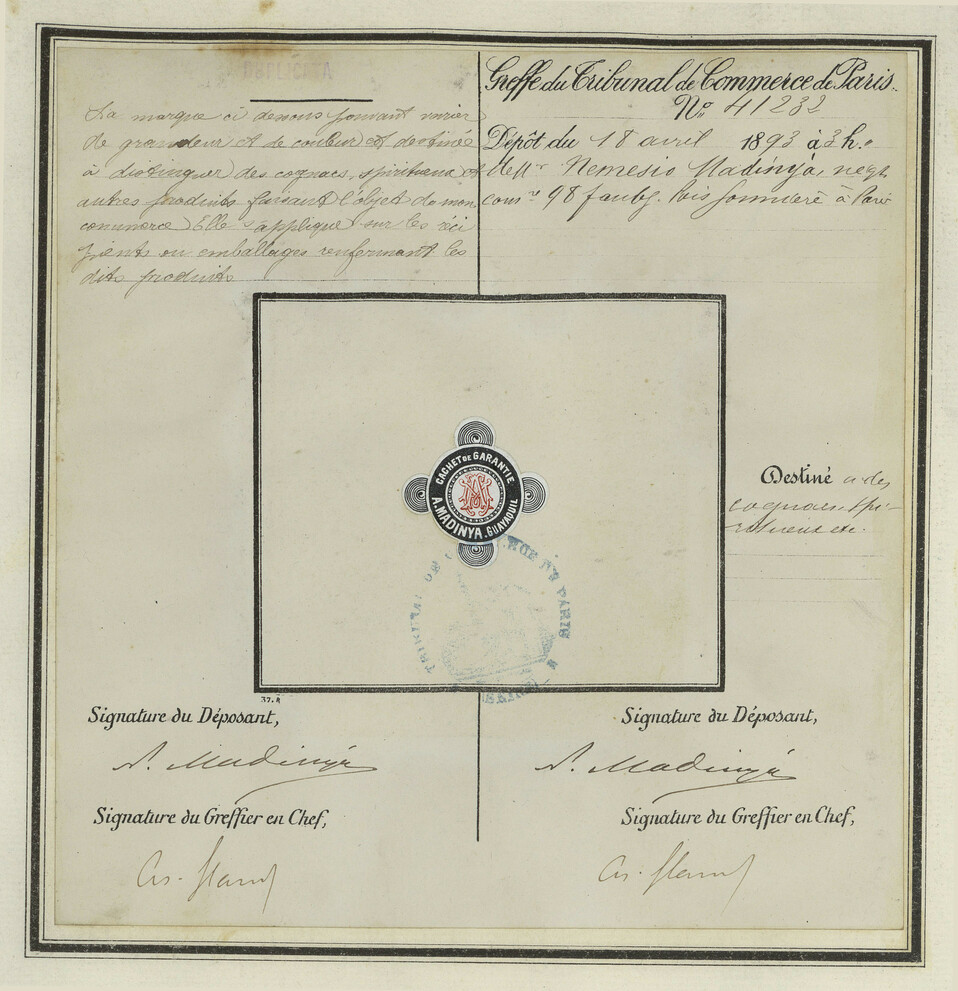 DUPLICATA
La marque ci dessous pouvant varier
de grandeur et de couleur et destinée
à distinguer des cognacs, spiritueux et
autres produits faisant l'objet de mon
commerce Elle s'applique sur les réci
pients ou emballages renfermant les
dits produits
Greffe du Tribunal de Commerce de Paris.
No. 41232
Dépôt du 18 avril 1893 à 3 h.
Nemesio Madinyá, negt
98 faubg. à Paris
CACHET DE GARANTIE
A. MADINYA. GUAYAQUIL
DE PARIS
Destiné à des
cognacs, spi-
ritueux etc.
37.R
Signature du Déposant,
N. Madinyá
Signature du Greffier en Chef,
Signature du Déposant,
N. Madinyá
Signature du Greffier en Chef,